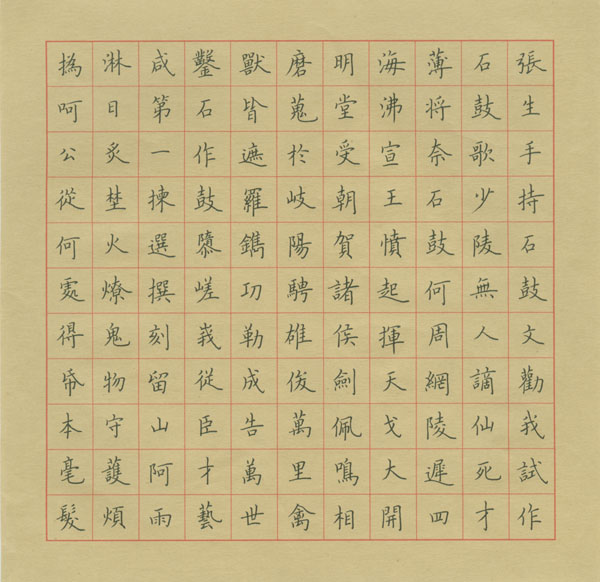 張生手持石鼓文勸我試作
石鼓歌少陵無人謫仙死才
薄将奈石鼓何周網陵遲四
海沸宣王憤起揮天戈大開
明堂受朝賀諸侯劍佩鳴相
磨蒐於岐陽騁雄俊萬里禽
獸皆遮羅鐫功勒成告萬世
鑿石作鼓隳嵯峩從臣才藝
咸第一揀選撰刻留山阿雨
淋日炙埜火燎鬼物守護煩
撝呵公從何處得帋本毫髮